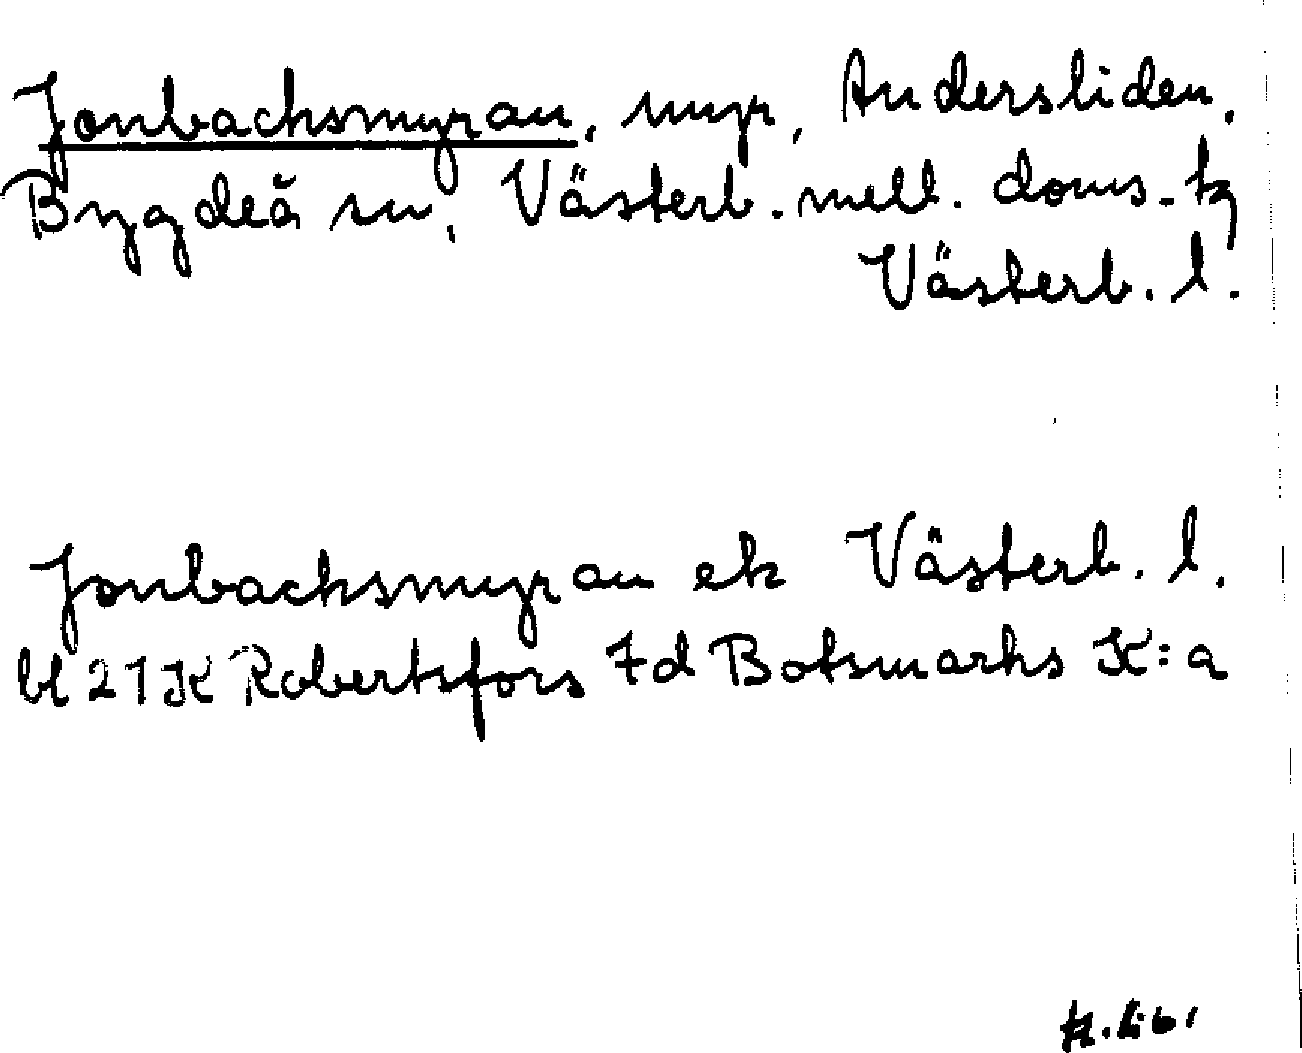 Jonbacksmyran, myr, Andersliden,
Bygdeå sn, Västerb. mell. doms-
Västerb. l.
Jonbacksmyran ek Västerb. l.
bl 21K Robertsfors 7d Botsmarks K:a